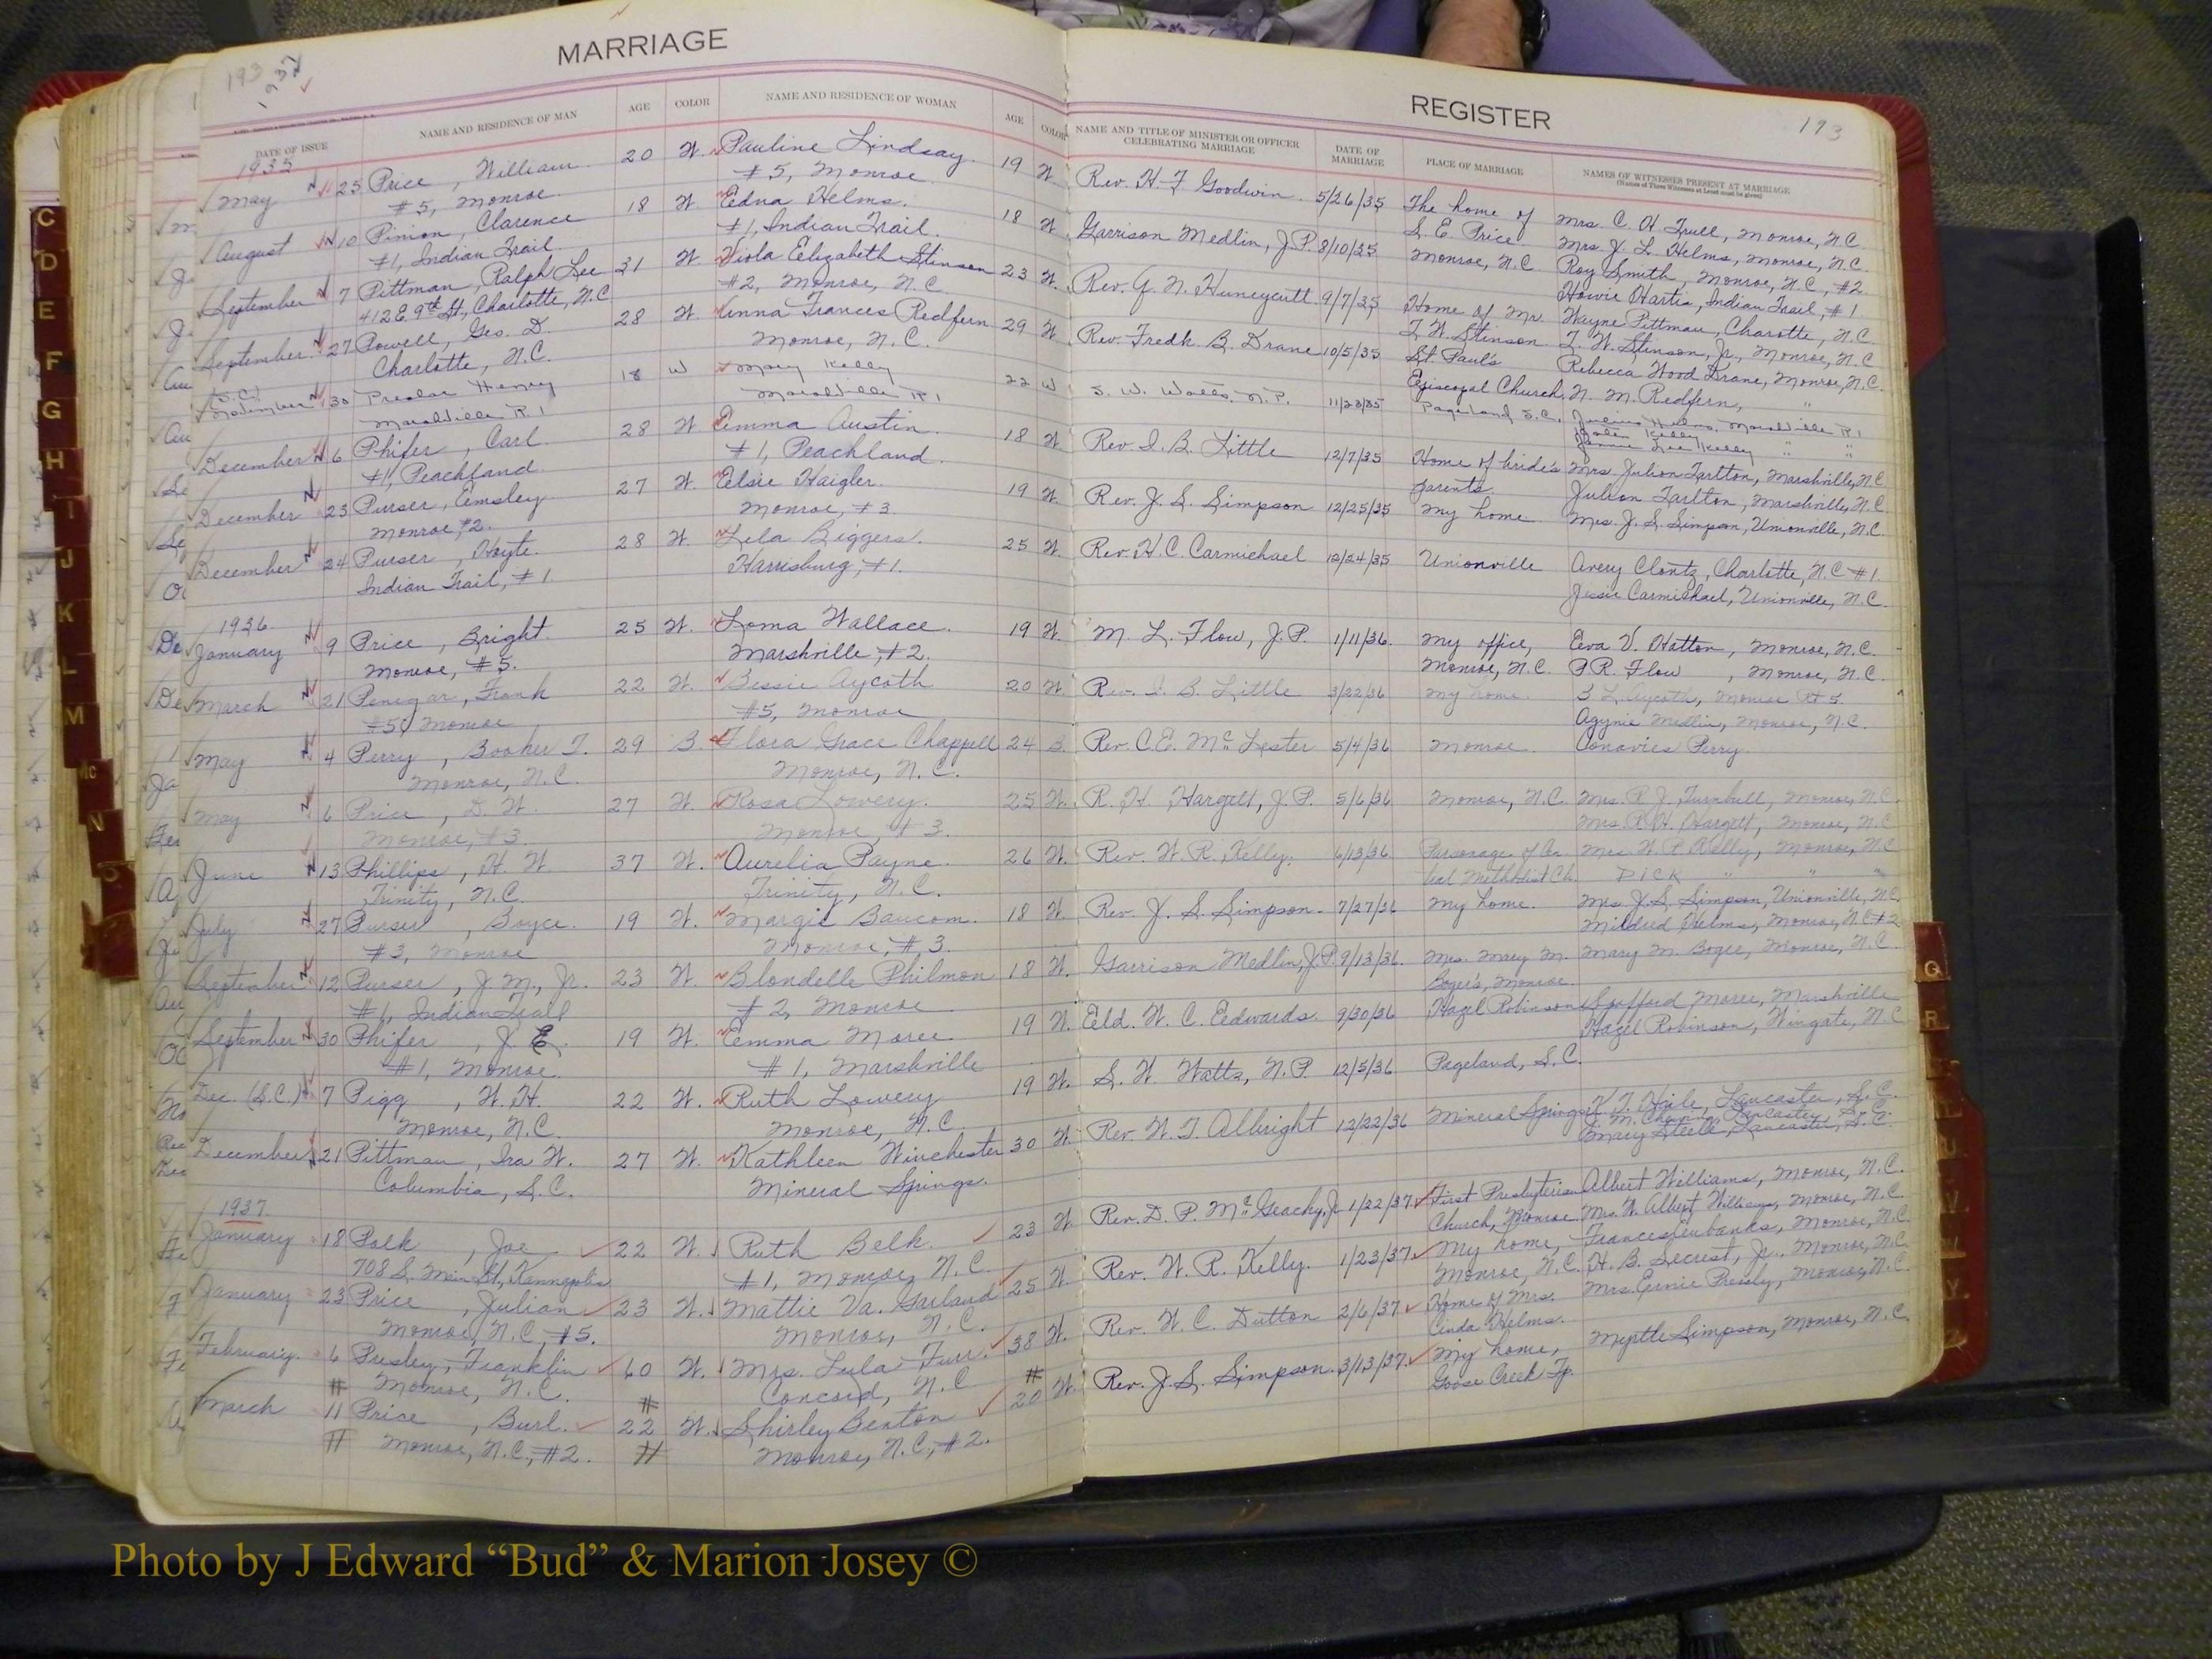 MARRIAGE
193
1937
DATE OF ISSUE
NAME AND RESIDENCE OF MAN
AGE
COLOR
NAME AND RESIDENCE OF WOMAN
AGE
COLOR
1935
May 25 Price, William 20 W. Pauline Lindsay 19 W.
#5, Monroe #5, Monroe
August 10 Pinion, Clarence 18 W Edna Helms 18 W
#1, Indian Trail #1, Indian Trail
September 7 Pittman, Ralph Lee 31 W. Viola Elizabeth Stinson 23 W.
412 E 9th St, Charlotte, N.C. #2, Monroe, N.C.
September 27 Powell, Geo. D. 28 W Anna Frances Redfern 29 W
Charlotte, N.C. Monroe, N.C.
(S.C.)
November 30 Preslar Henry 18 W Mary Kelly 22 W
Marshville R1 Marshville R1
December 6 Phifer, Carl 28 W. Emma Austin 18 W
#1, Peachland #1, Peachland
December 23 Purser, Emsley 27 W. Elsie Haigler 19 W.
Monroe #2. Monroe, #3
December 24 Purser, Hoyte 28 W. Lela Biggers 25 W.
Indian Trail, #1 Harrisburg, #1.
1936
January 9 Price, Bright 25 W. Loma Wallace 19 W
Monroe, #5. Marshville, #2.
March 21 Penegar, Frank 22 W. Bessie Aycoth 20 W.
#5, Monroe #5, Monroe
May 4 Perry, Booker T. 29 B. Flora Grace Chappell 24 B.
Monroe, N.C. Monroe, N.C.
May 6 Price, D. W. 27 W. Rosa Lowery 25 W.
Monroe, #3 Monroe, #3.
June 13 Phillips, H. W. 37 W. Aurelia Payne 26 W.
Trinity, N.C. Trinity, N.C.
July 27 Purser, Boyce 19 W. Margie Baucom 18 W
#3, Monroe Monroe, #3.
September 12 Purser, J. M., Jr. 23 W. Blondelle Philmon 18 W.
#1, Indian Trail #2, Monroe
September 30 Phifer, J. E. 19 W. Emma Moree 19 W.
#1, Monroe #1, Marshville
Dec. (S.C.) 7 Pigg, W. H. 22 W. Ruth Lowery 19 W.
Monroe, N.C. Monroe, N.C.
December 21 Pittman, Ira W. 27 W. Kathleen Winchester 30 W.
Columbia, S.C. Mineral Springs.
1937
January 18 Polk, Joe 22 W. Ruth Belk 23 W
708 S. Main St, Kannapolis #1, Monroe, N.C.
January 23 Price, Julian 23 W. Mattie Va. Garland 25 W
Monroe, N.C. #5. Monroe, N.C.
February 6 Presley, Franklin 60 W. Mrs. Lula Furr 38 W.
# Monroe, N.C. # Concord, N.C. #
March 11 Price, Burl. 22 W. Shirley Benton 20 W.
# Monroe, N.C., #2. # Monroe, N.C., #2.
REGISTER
193
NAME AND TITLE OF MINISTER OR OFFICER CELEBRATING MARRIAGE
DATE OF MARRIAGE
PLACE OF MARRIAGE
NAMES OF WITNESSES PRESENT AT MARRIAGE
(Names of Three Witnesses at Least must be given)
Rev. H. F. Goodwin 5/26/35 The home of Mrs. C. H. Trull, Monroe, N.C.
S. E. Price Mrs. J. L. Helms, Monroe, N.C.
Garrison Medlin, J.P. 8/10/35 Monroe, N.C. Roy Smith, Monroe, N.C., #2
Howie Hartis, Indian Trail, #1
Rev. G. N. Huneycutt 9/7/35 Home of Mr. Wayne Pittman, Charotte, N.C
T. W. Stinson T. W. Stinson, Jr., Monroe, N.C
Rev. Fredk. B. Drane 10/5/35 St. Paul's Rebecca Wood Drane, Monroe, N.C.
Episcopal Church. N. M. Redfern, "
S. W. Watts, N.P. 11/23/35 Pageland S.C. Julius Helms, Marshville R1
Kelly " "
Jennie Lee Kelly " "
Rev. I. B. Little 12/7/35 Home of bride's Mrs. Julian Tarlton, Marshville, N.C
parents Julian Tarlton, Marshville, N.C.
Rev. J. S. Simpson 12/25/35 My home Mrs. J. S. Simpson, Unionville, N.C.
Rev. H. C. Carmichael 12/24/35 Unionville Avery Clontz, Charlotte, N.C #1.
Jessie Carmichael, Unionville, N.C.
M. L. Flow, J.P. 1/11/36 My office, Eva V. Hatton, Monroe, N.C.
Monroe, N.C. P. R. Flow, Monroe, N.C.
Rev. I. B. Little 3/22/36 My home. B L Aycoth, Monroe Rt 5
Agynie Medlin, Monroe, N.C.
Rev. C. E. McLester 5/4/36 Monroe Conovies Perry
R. H. Hargett, J.P. 5/6/36 Monroe, N.C. Mrs. R. J. Turnbull, Monroe, N.C.
Mrs. R. H. Hargett, Monroe, N.C
Rev. W. R. Kelly. 6/13/36 Parsonage of Cen Mrs. W. R Kelly, Monroe, N.C
tral Methodist Ch. DICK " " "
Rev. J. S. Simpson 7/27/36 My home. Mrs J. S. Simpson, Unionville, N.C.
Mildred Helms, Monroe, N.C #2
Garrison Medlin, J.P. 9/13/36 Mrs. Mary M. Mary M. Bogee, Monroe, N.C.
Boger's, Monroe
Eld. W. C. Edwards 9/30/36 Hazel Robinson Spafford Moree, Marshville
Hazel Robinson, Wingate, N.C
S. W. Watts, N.P. 12/5/36 Pageland, S.C.
Rev. W. T. Albright 12/22/36 Mineral Springs K. T. Haile, Lancaster, S.C.
Lancaster, S.C.
Mary Steele, Lancaster, S.C.
Rev. D. P. McGeachy, Jr 1/22/37 First Presbyterian Albert Williams, Monroe, N.C.
Church, Monroe Mrs. W. Albert Williams, Monroe, N.C.
Frances Eubanks, Monroe, N.C
Rev. W. R. Kelly. 1/23/37 My home, H. B. Secrest, Jr., Monroe, N.C
Monroe, N.C. Mrs. Ernie Pressly, Monroe, N.C.
Rev. W. C. Dutton 2/6/37 Home of Mrs.
Cinda Helms.
Rev. J. S. Simpson 3/13/37 My home, Myrtle Simpson, Monroe, N.C.
Goose Creek Tp.
C
D
E
F
G
H
I
J
K
L
M
Mc
N
Q
R
U
V
Y
Z
Photo by J Edward “Bud” & Marion Josey ©